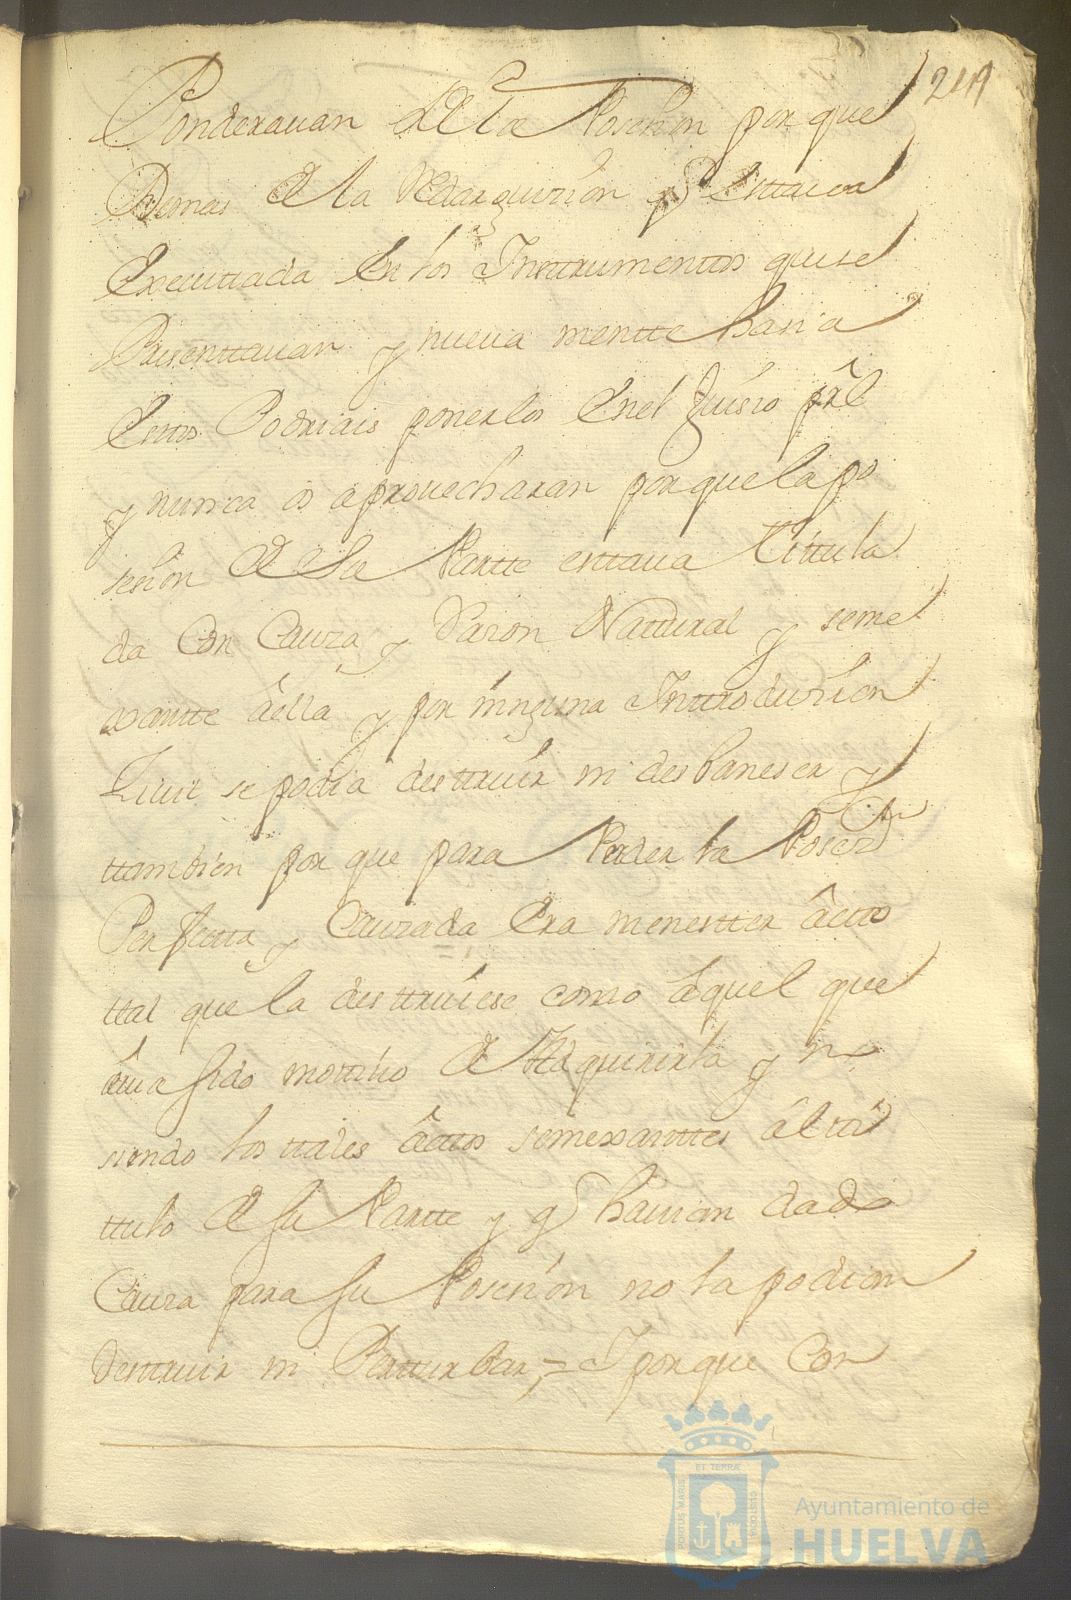 219
Ponderauan de la Posesion por que
Demas de la Redarguision q̃ esttaua
Executtada en los Insttrumentos que se
Presenttauan y nueua mentte hasia
Esttos Podriais ponerlos en el Juisio prâl
y nunca os aprouecharan por que la po
sesion de su Partte esttaua tittula
da con Cauza y Rason Natural y seme
xantte âella y por ninguna Inttroduzion
Siuil se podia desttruir ni desbaneser y
ttambien por que para Perder la Poseson
Perfectta y Cauzada era menestter âcto
ttal que la desttruiese como aquel que
âuia sido mottibo de Adquirirla y no
siendo los ttales âctos semexanttes âl tti
ttulo de su Partte y q̃ hauian dado
Cauza para su Posesion no la podian
Desttruir ni Perturbar = Y por que Con
PORTUS MARIS ET TERRÆ CUSTODIA
Ayuntamiento de
HUELVA